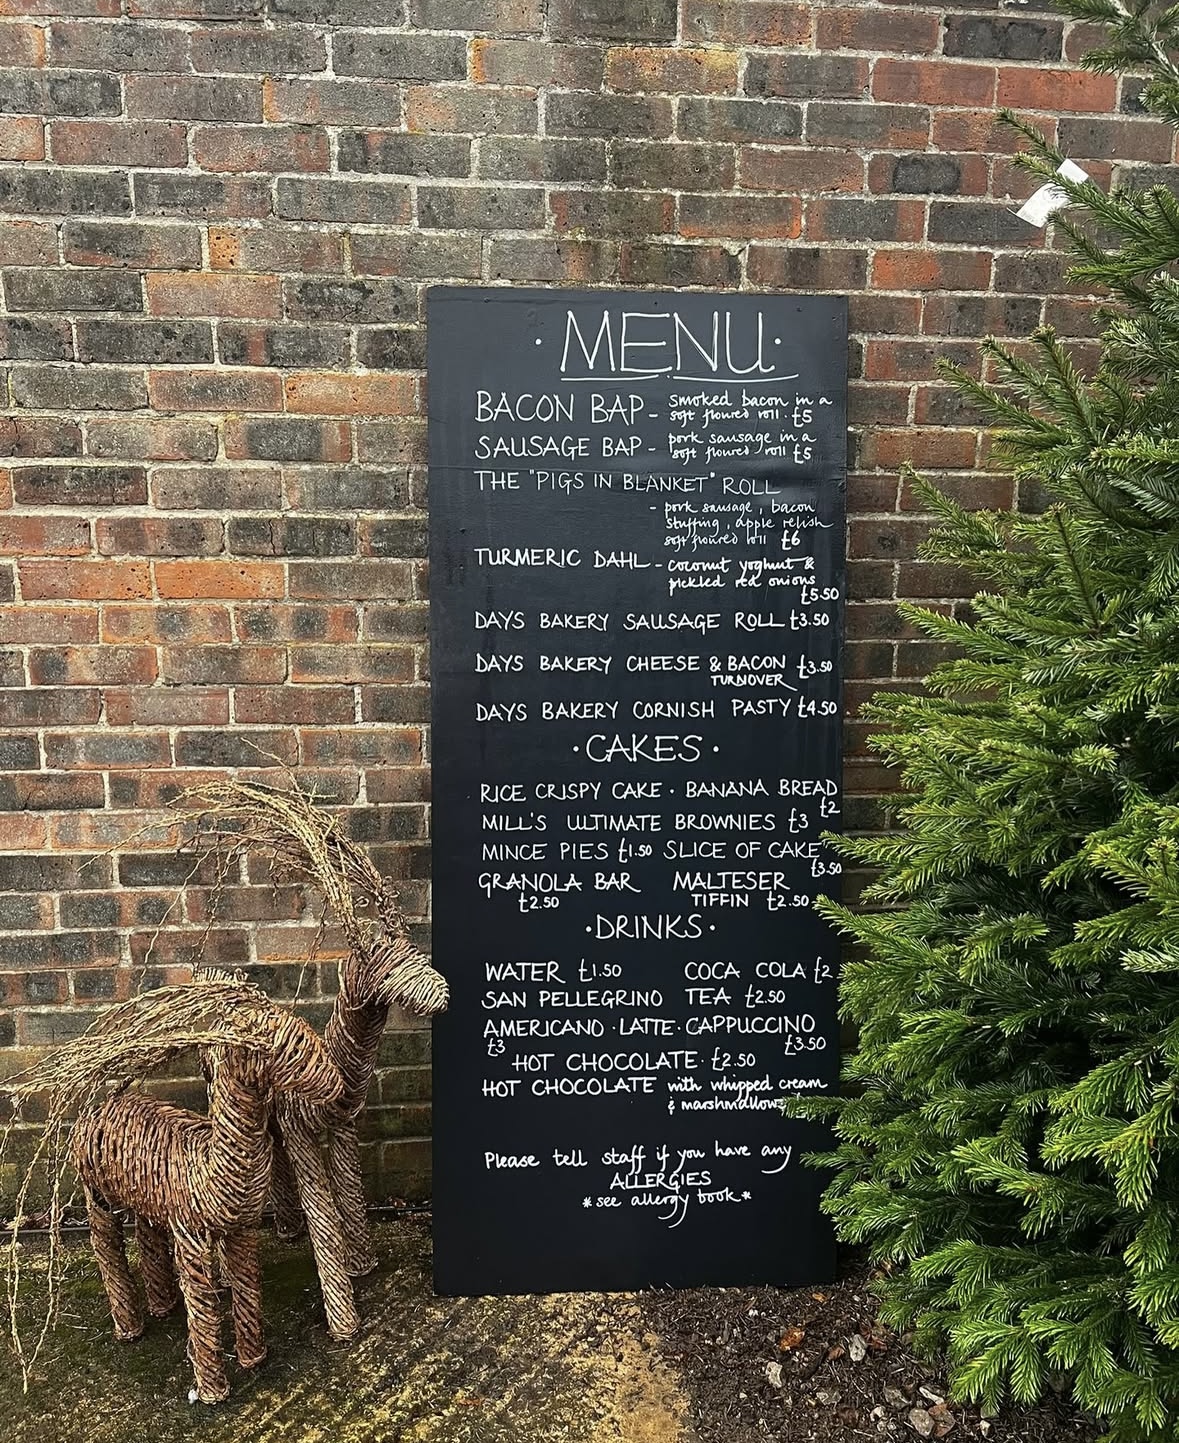 · MENU ·
BACON BAP - smoked bacon in a
soft floured roll · £5
SAUSAGE BAP - pork sausage in a
soft floured roll £5
THE "PIGS IN BLANKET" ROLL
- pork sausage, bacon
stuffing, apple relish
soft floured roll £6
TURMERIC DAHL - coconut yoghurt &
pickled red onions
£5.50
DAYS BAKERY SAUSAGE ROLL £3.50
DAYS BAKERY CHEESE & BACON £3.50
TURNOVER
DAYS BAKERY CORNISH PASTY £4.50
· CAKES ·
RICE CRISPY CAKE · BANANA BREAD
£2
MILL'S ULTIMATE BROWNIES £3
MINCE PIES £1.50 SLICE OF CAKE
£3.50
GRANOLA BAR MALTESER
£2.50 TIFFIN £2.50
· DRINKS ·
WATER £1.50 COCA COLA £2
SAN PELLEGRINO TEA £2.50
AMERICANO · LATTE · CAPPUCCINO
£3 £3.50
HOT CHOCOLATE · £2.50
HOT CHOCOLATE with whipped cream
& marshmallows
Please tell staff if you have any
ALLERGIES
*see allergy book*